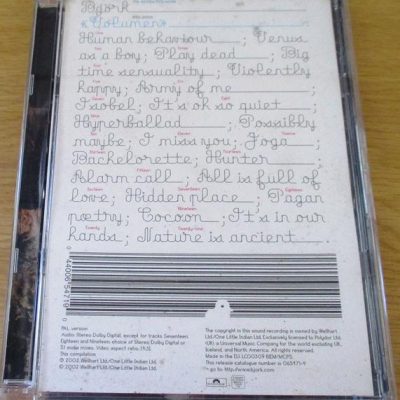 Björk
Volumen
Human behaviour ; Venus
as a boy ; Play dead ; Big
time sensuality ; Violently
happy ; Army of me ;
Isobel ; It's oh so quiet ;
Hyperballad ; Possibly
maybe ; I miss you ; Joga ;
Bachelorette ; Hunter ;
Alarm call ; All is full of
love ; Hidden place ; Pagan
poetry ; Cocoon ; It's in our
hands ; Nature is ancient .
PAL version
Audio: Stereo Dolby Digital, except for tracks Seventeen
Eighteen and Nineteen choice of Stereo Dolby Digital or
5.1 audio mixes. Video aspect ratio:
This compilation:
℗ 2002 Wellhart Ltd/One Little Indian Ltd.
© 2002 Wellhart Ltd/One Little Indian Ltd.
The copyright in this sound recording is owned by Wellhart
Ltd/One Little Indian Ltd. Exclusively licensed to Polydor Ltd.
(UK), a Universal Music Company for the world excluding UK,
Iceland, and North America. All rights reserved.
Made in the EU. LC00309 BIEM/MCPS.
This release catalogue number is 065471-9
go to: http://www.bjork.com